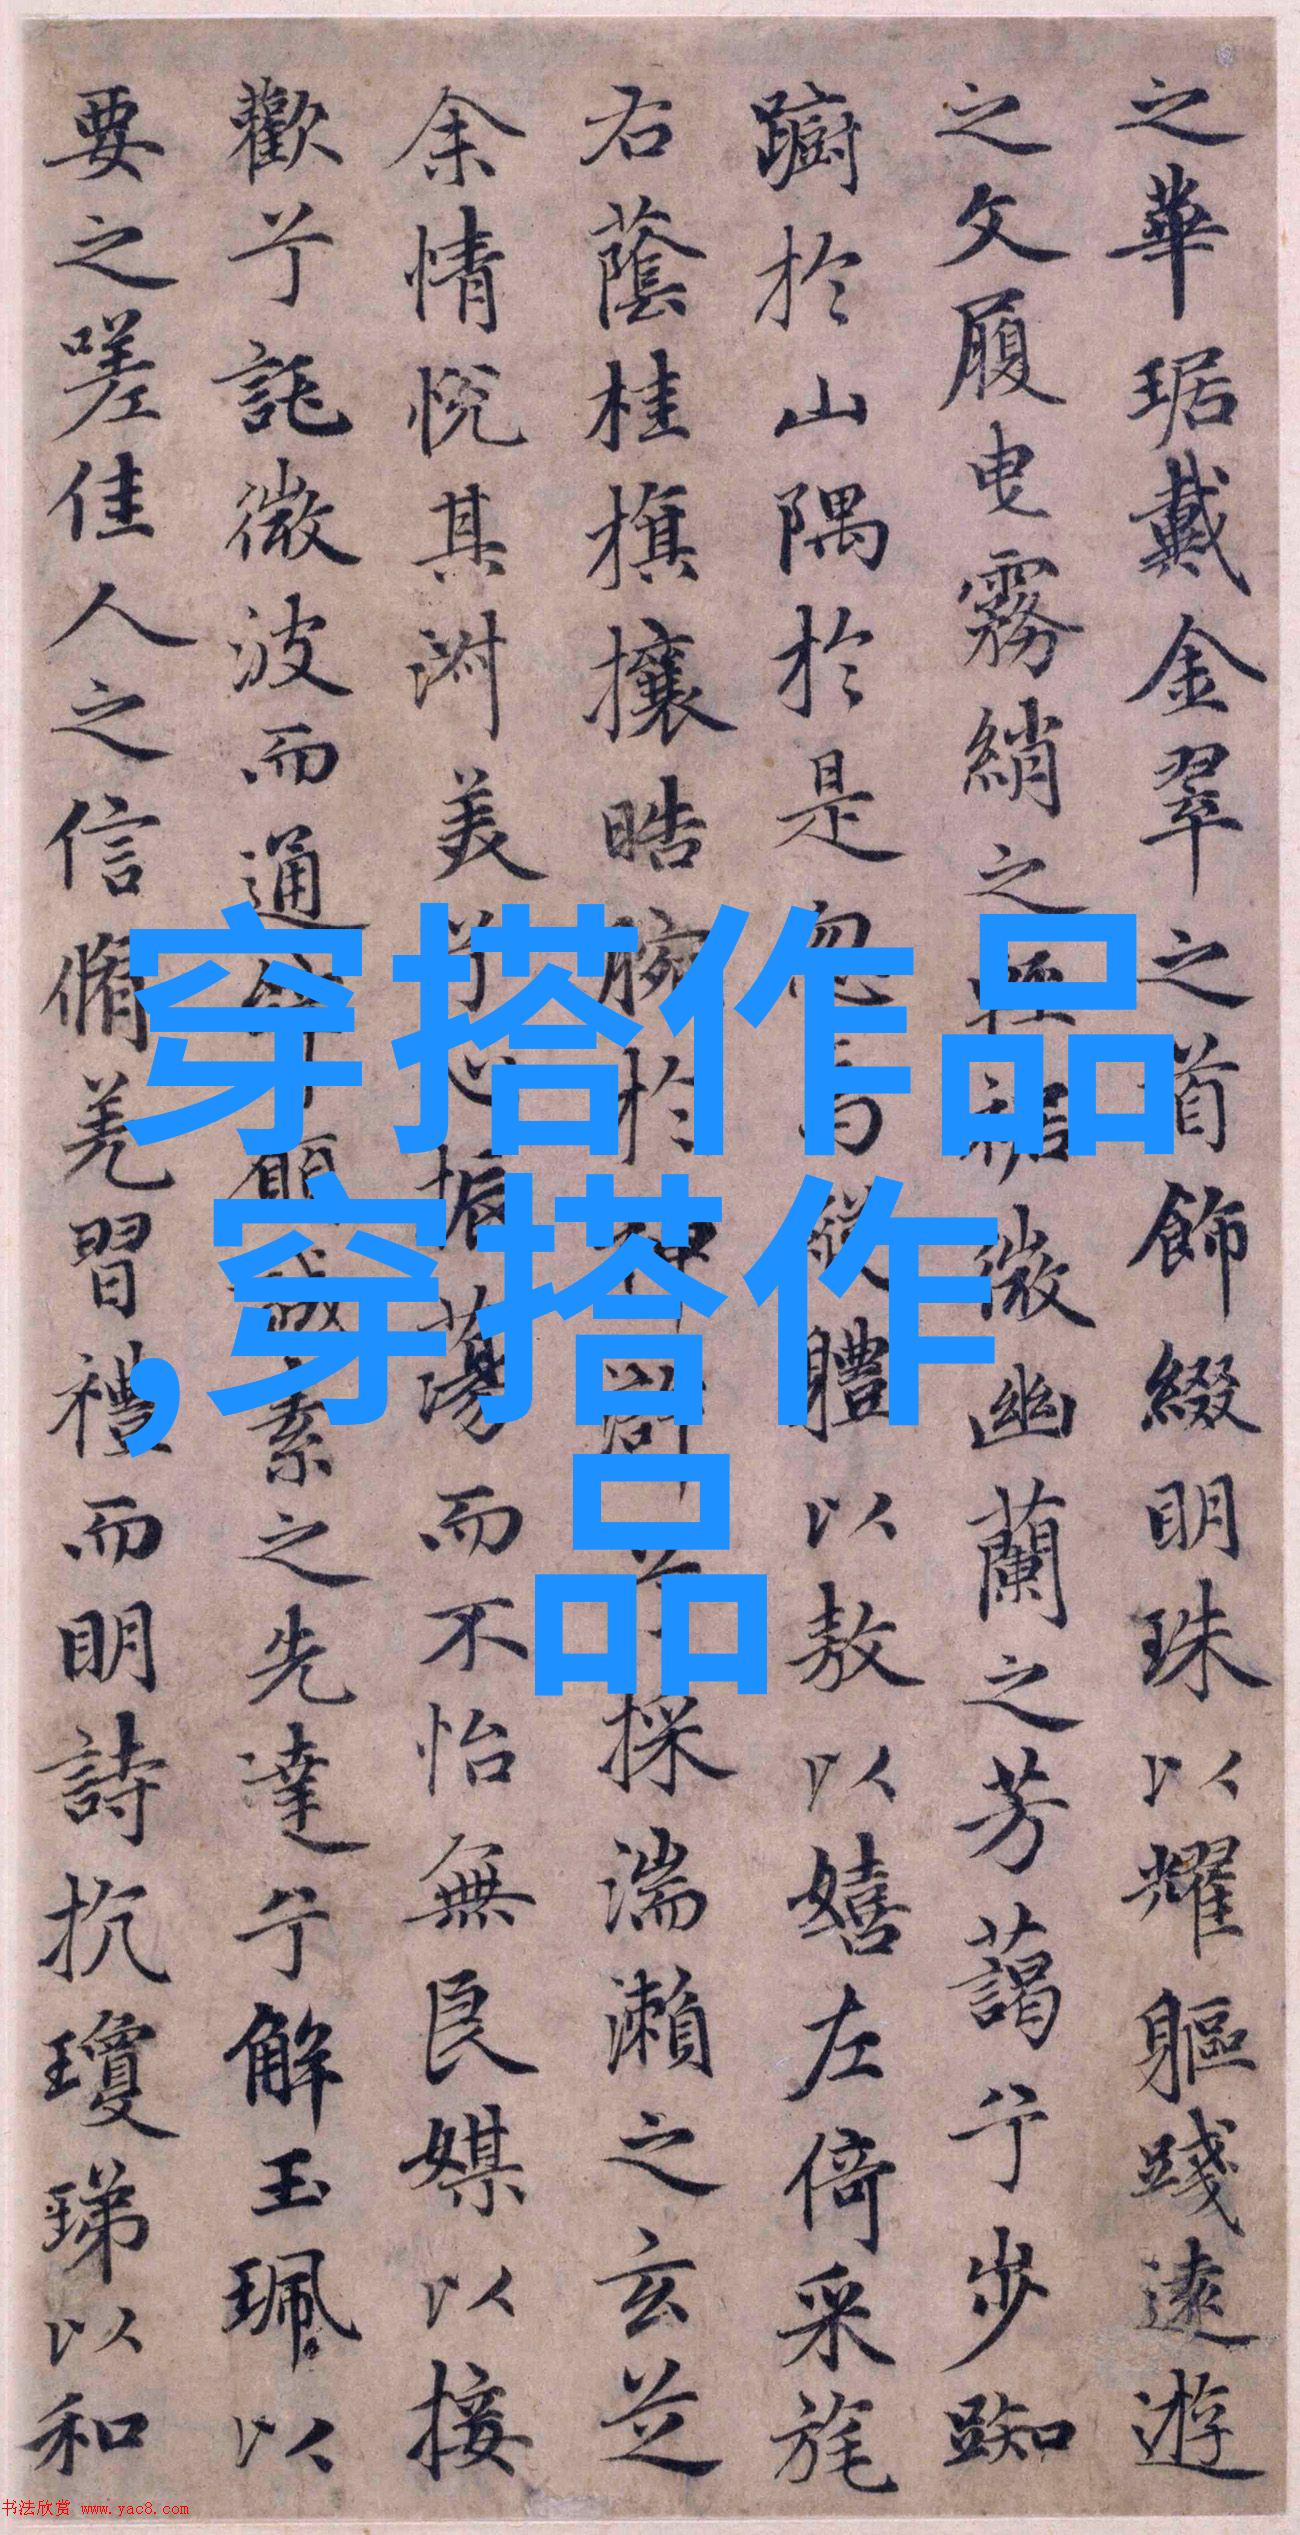 之華琚戴金翠之首飾綴明珠以耀軀踐遠遊
之文履曳霧綃之輕裾微幽蘭之芳藹兮步踟
躕於山隅於是忽焉縱體以敖以嬉左倚采旄
右蔭桂旗攘晧腕於神滸兮採湍瀨之玄芝
余情悅其淑美兮心振蕩而不怡無良媒以接
歡兮託微波而通辭願誠素之先達兮解玉珮以
要之嗟佳人之信脩羌習禮而明詩抗瓊珶以和
穿搭作品
,穿搭作
品
书法欣赏 www.yac8.com